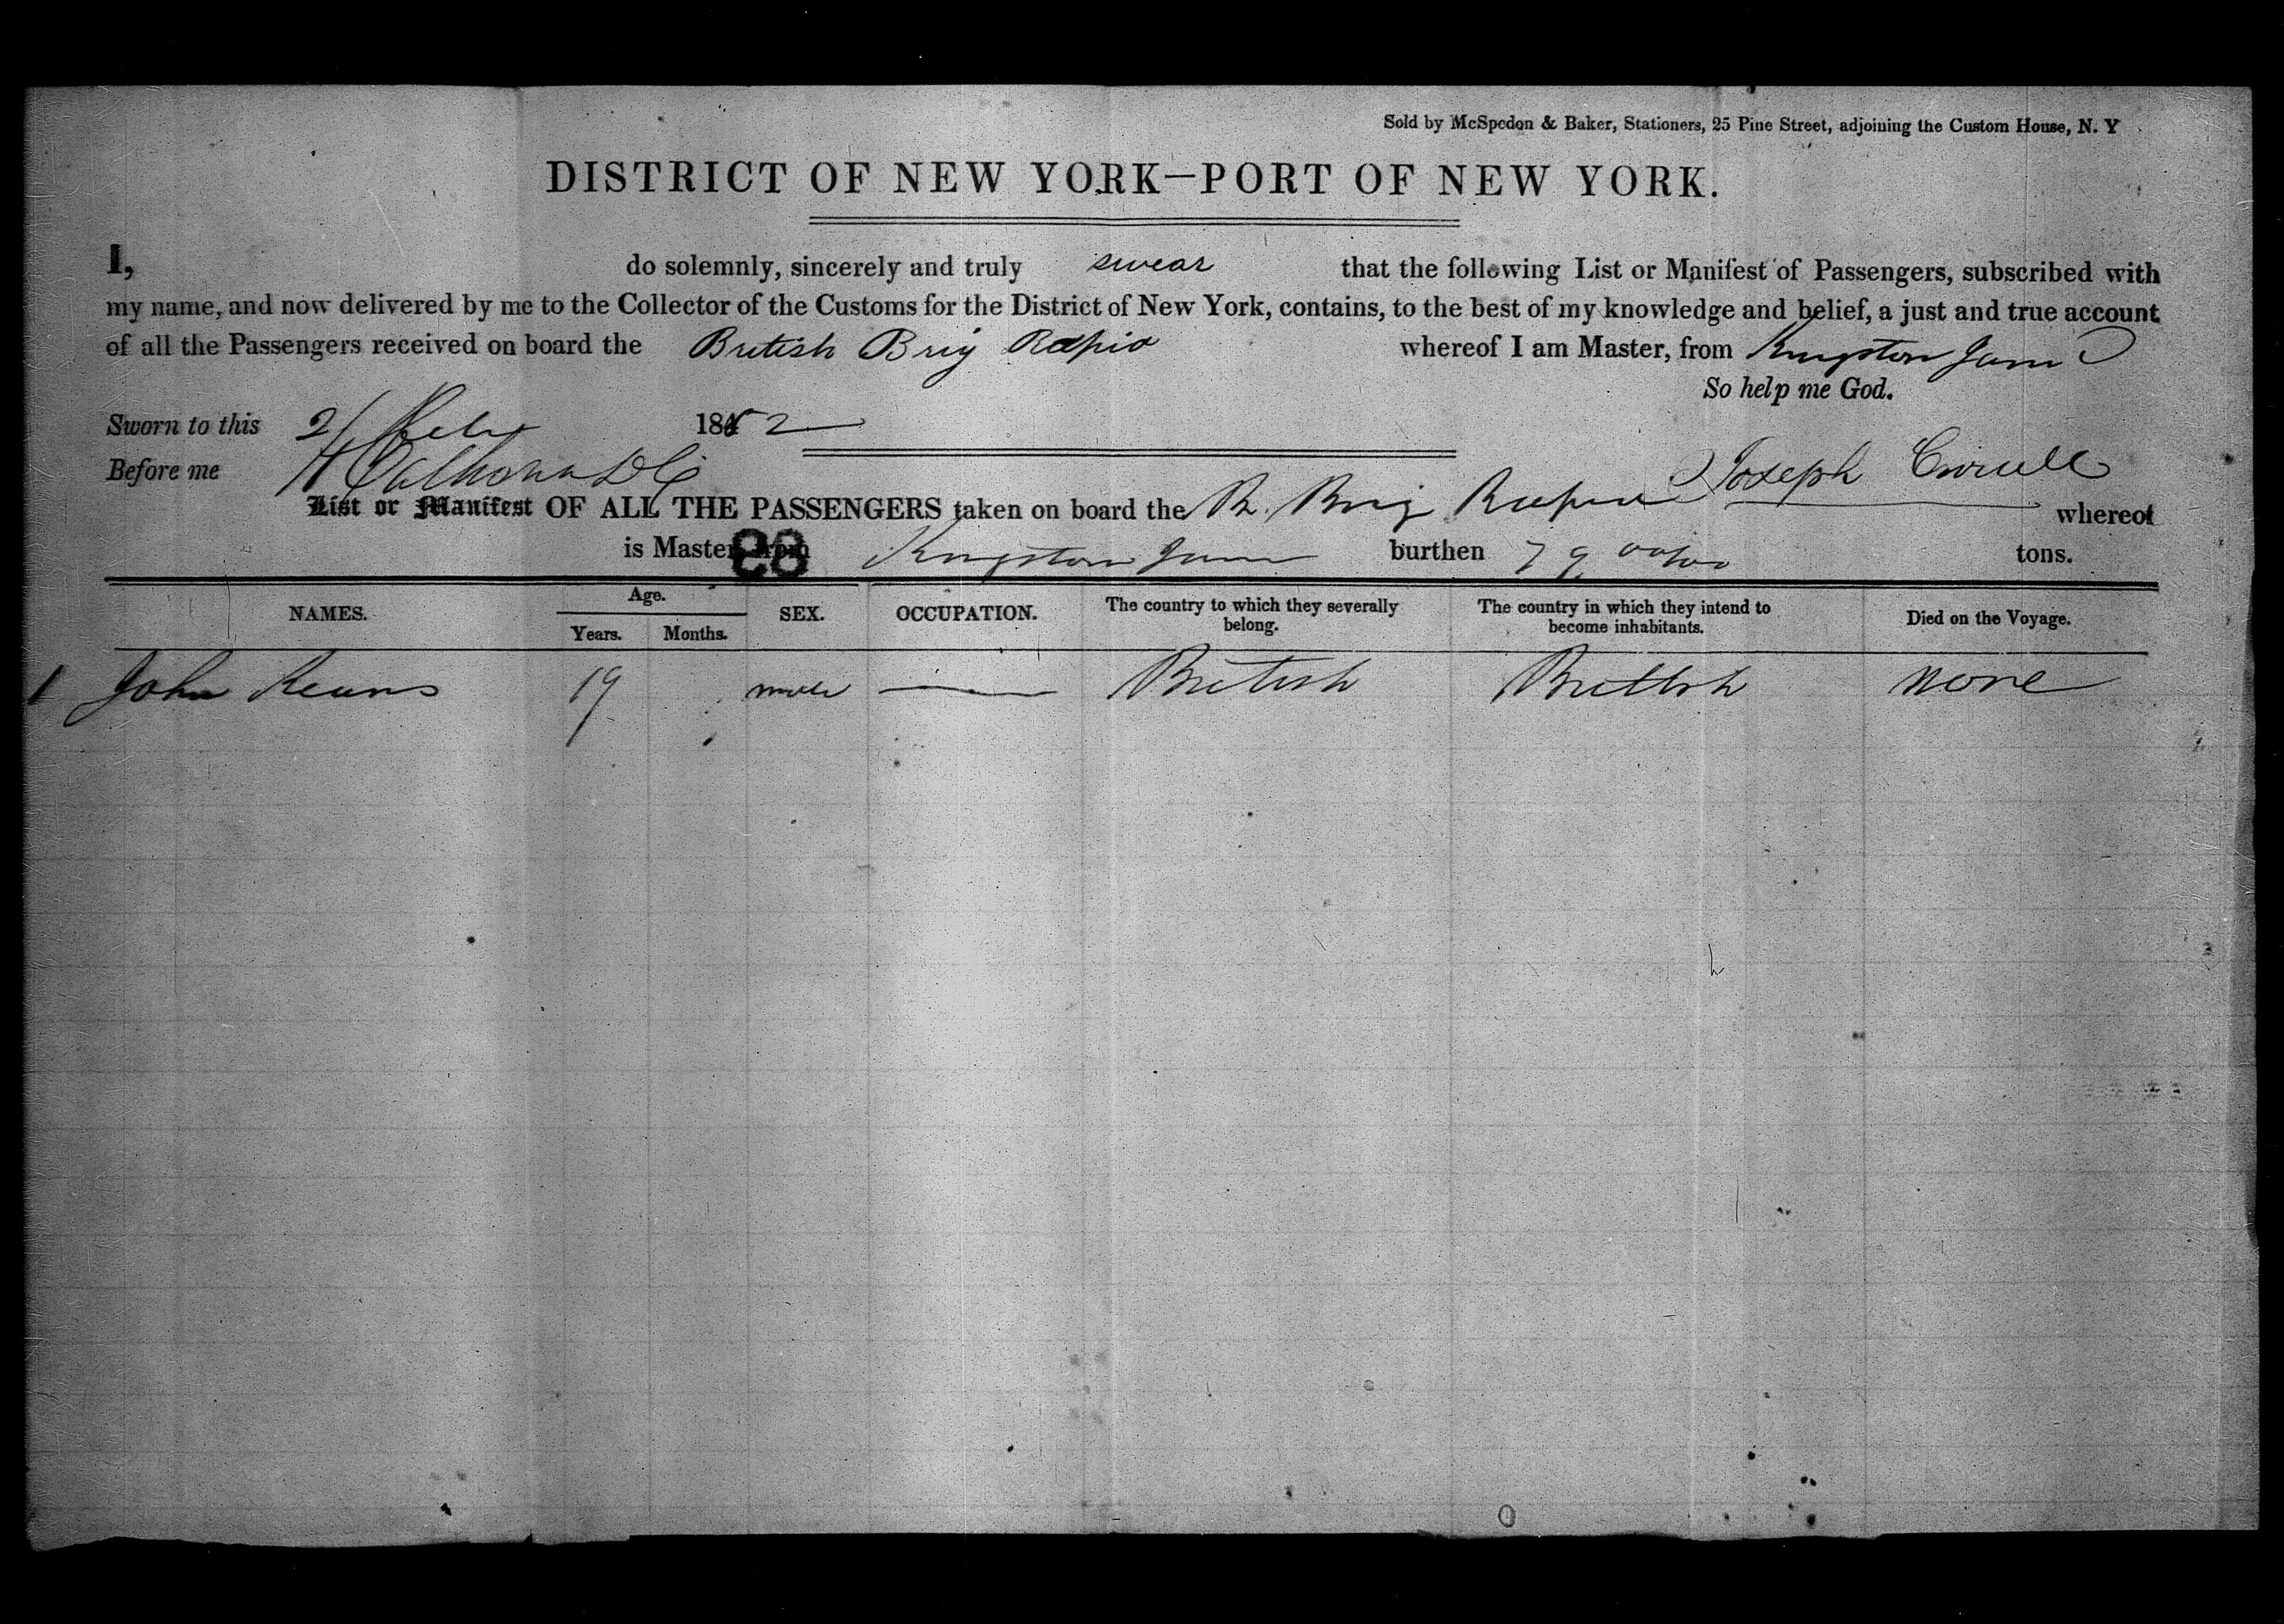 Sold by McSpedon & Baker, Stationers, 25 Pine Street, adjoining the Custom House, N. Y
DISTRICT OF NEW YORK—PORT OF NEW YORK.
I, do solemnly, sincerely and truly swear that the following List or Manifest of Passengers, subscribed with
my name, and now delivered by me to the Collector of the Customs for the District of New York, contains, to the best of my knowledge and belief, a just and true account
of all the Passengers received on board the British Brig Rapid whereof I am Master, from Kingston Jam
So help me God.
Sworn to this 1852
Before me Joseph
List or Manifest OF ALL THE PASSENGERS taken on board the B. Brig whereof
is Master, from Kingston Jam burthen 79 tons.
88
NAMES. Age. SEX. OCCUPATION. The country to which they severally belong. The country in which they intend to become inhabitants. Died on the Voyage.
Years. Months.
1 John 19 male — British British None